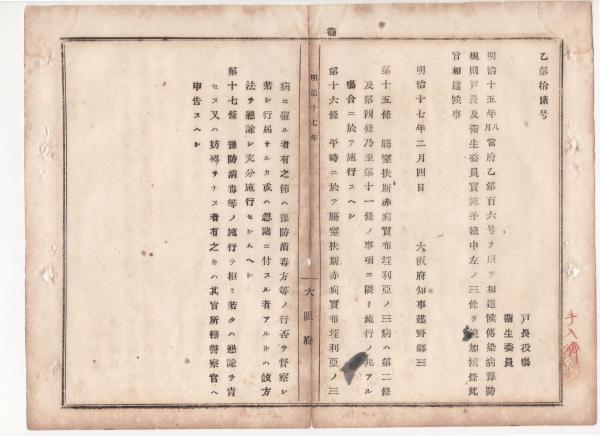 乙第拾貳号
戸長役塲
衞生委員
明治十五年八月當府乙第百六号ヲ以テ相達候傳染病豫防
規則戸長及衞生委員實施手續中左ノ三條ヲ追加候條此
旨相達候事
明治十七年二月四日
大阪府知事建野郷三
第十五條 膓窒扶斯赤痢實布垤利亞ノ三病ハ第二條
及第四條乃至第十一條ノ事項ニ限リ施行ノ兆アル
塲合ニ於テ施行スヘシ
第十六條 平時ニ於テ膓窒扶斯赤痢實布垤利亞ノ三
明治十七年
大阪府
病ニ罹ル者有之節ハ豫防消毒方等ノ行否ヲ督察シ
若シ行届サルカ或ハ忽諸ニ付スル者アルトキハ該方
法ヲ懇諭シ充分施行セシムヘシ
第十七條 豫防消毒等ノ施行ヲ拒ミ若クハ懇諭ヲ肯
セス又ハ妨碍ヲナス者有之トキハ其旨所轄警察官ヘ
申告スヘシ
手入濟